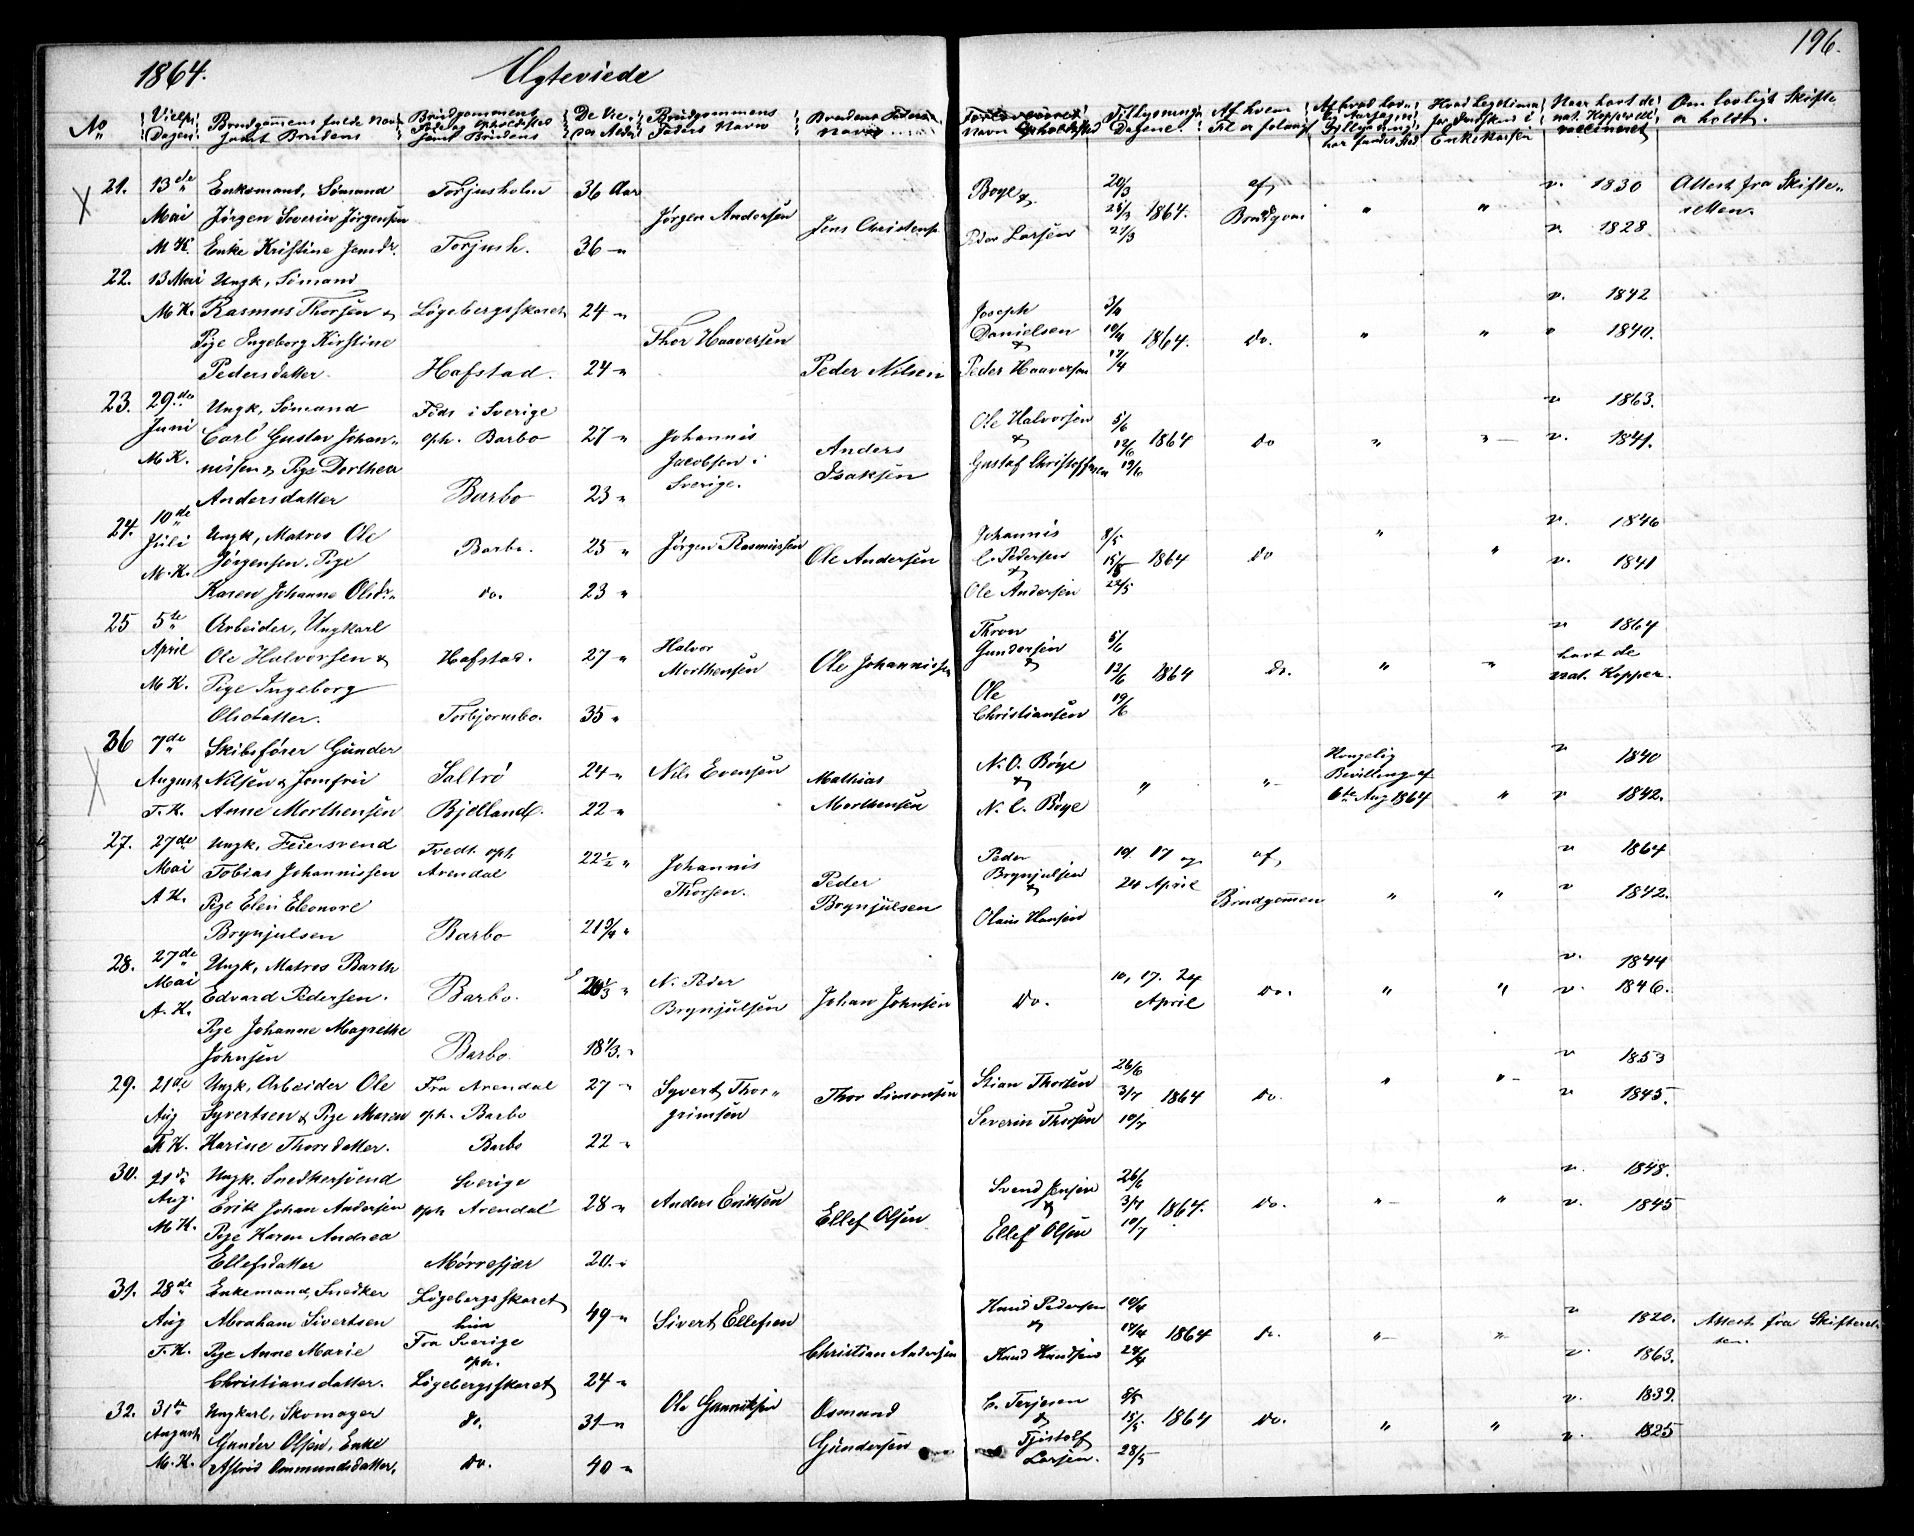 196.
1864. Ægteviede
No Vielses Dagen Brudgommens fulde Navn samt Brudens Brudgommens Føde og Opholdssted samt Brudens De Vie- des Alder Brudgommens Faders Navn Brudens Faders Navn Forloverens Navn Opholdssted Tillysnings Dagene. Af hvem Til er forlangt Naar havt de nat. Kopper ell. vaccineret Om lovligt Skifte er holdt.
21. 13de Mai M. K. Enkemand, Sømand Torjusholm 36 Aar
Jørgen Severin Jørgensen Jørgen Andersen Jens Christens.
Enke Kristine Jensdr. Torjush. 36 "
Boye & Peder Larsen 20/3 28/3 1864. af Brudgom " " v. 1830 v. 1828 Attest fra Skifte- retten.
22. 13 Mai M. K. Ungk, Sømand
Rasmus Thorsen & Løgebergsskaret 24 "
Pige Ingeborg Kirstine Thor Haaversen
Pedersdatter. Hafstad. 24 " Peder Nilsen
Joseph Danielsen & Peder Haaversen 3/4 10/4 17/4 1864. do. " " v. 1842 v 1840.
23. 29de Juni M. K. Ungk, Sømand Føds i Sverige
Carl Gustav Johan- oph. Barbo 27 " Johannis Jacobsen i Sverige. Anders Isaksen
nissen & Pige Dorthea
Andersdatter Barbo 23 "
Ole Halvorsen & Gustaf Christoffersen 5/6 12/6 19/6 1864 do " " v 1863. v. 1841.
24. 10de Juli M. K. Ungk, Matros Ole
Jørgensen. Pige Barbo. 25 " Jørgen Rasmussen Ole Andersen
Karen Johanne Olsdr. do. 23 "
Johannis C. Pedersen & Ole Andersen 8/5 15/5 22/5 1864 do " " v. 1846 v. 1841
25 5te April M. K. Arbeider, Ungkarl
Ole Halvorsen & Hafstad. 27 " Halvor Morthensen Ole Johannissen
Pige Ingeborg
Olsdatter. Torbjørnsbo. 35 "
Thron Gundersen & Ole Christiansen 5/6 12/6 19/6 1864 do. " " v 1864 havt de nat. Kopper.
36 7de August T. K. Skibsfører Gunder
Nilsen & Jomfru Saltrø 24 " Nils Evensen Mathias Morthensen
Anne Morthensen Bjelland. 22 "
N. O. Bøye & N. C. Bøye " " Kongelig Bevilling af 6te Aug 1864 " v 1840 v 1842.
27. 27de Mai A. K. Ungk, Feiersvend Tvedt. oph
Tobias Johannissen Arendal 22½ " Johannis Thorsen. Peder Brynjulsen
Pige Elen Eleonore
Brynjulsen Barbo 21 3/4 "
Peder Brynjulsen & Olaus Hansen 10. 17 og 24 April af Brudgommen " " v 1864 v 1842.
28. 27de Mai A. K. Ungk, Matros Barth
Edvard Pedersen. Barbo. N. Peder Brynjulsen Johan Johnsen
Pige Johanne Magrethe
Johnsen Barbo 18 1/3. "
do. 10, 17. 24 April do. " " v. 1844 v. 1846.
29. 21de Aug T. K. Ungk, Arbeider Ole Fra Arendal 27 "
Syvertsen & Pige Maren oph. Barbo Syvert Thor- grimsen Thor Simonsen
Karine Thorsdatter. Barbo 22 "
Stian Thorsen Severin Thorsen 26/6 3/7 10/7 1864 do. " " v 1853 v 1845.
30. 21de Aug. M. K. Ungk. Snedkersvend Sverige
Erik Johan Andersen oph Arendal 28 " Anders Eriksen Ellef Olsen
Pige Karen Andrea
Ellefsdatter Mørrefjær 20. "
Svend Jensen & Ellef Olsen 26/6 3/7 10/7 1864. do. " " v. 1848. v. 1845
31. 28de Aug T. K. Enkemand, Snedker Løgebergsskaret
Abraham Sivertsen hun 49 " Sivert Ellefsen
Pige Anne Marie Fra Sverige oph. Christian Andersen
Christiansdatter. Løgebergsskaret 24 "
Knud Pedersen & Knud Knudsen 10/4 17/4 24/4 1864 do. " " v 1820. v. 1863. Attest fra Skifteret- ten.
32. 31te August M. K. Ungkarl, Skomager do. 31 " Osmund Gundersen
Gunder Olsen, Enke
Astrid Osmundsdatter. do. 40 "
C. Terjesen & Tjostolf Larsen. 8/5 15/5 1864 do. " " v. 1839. v. 1825